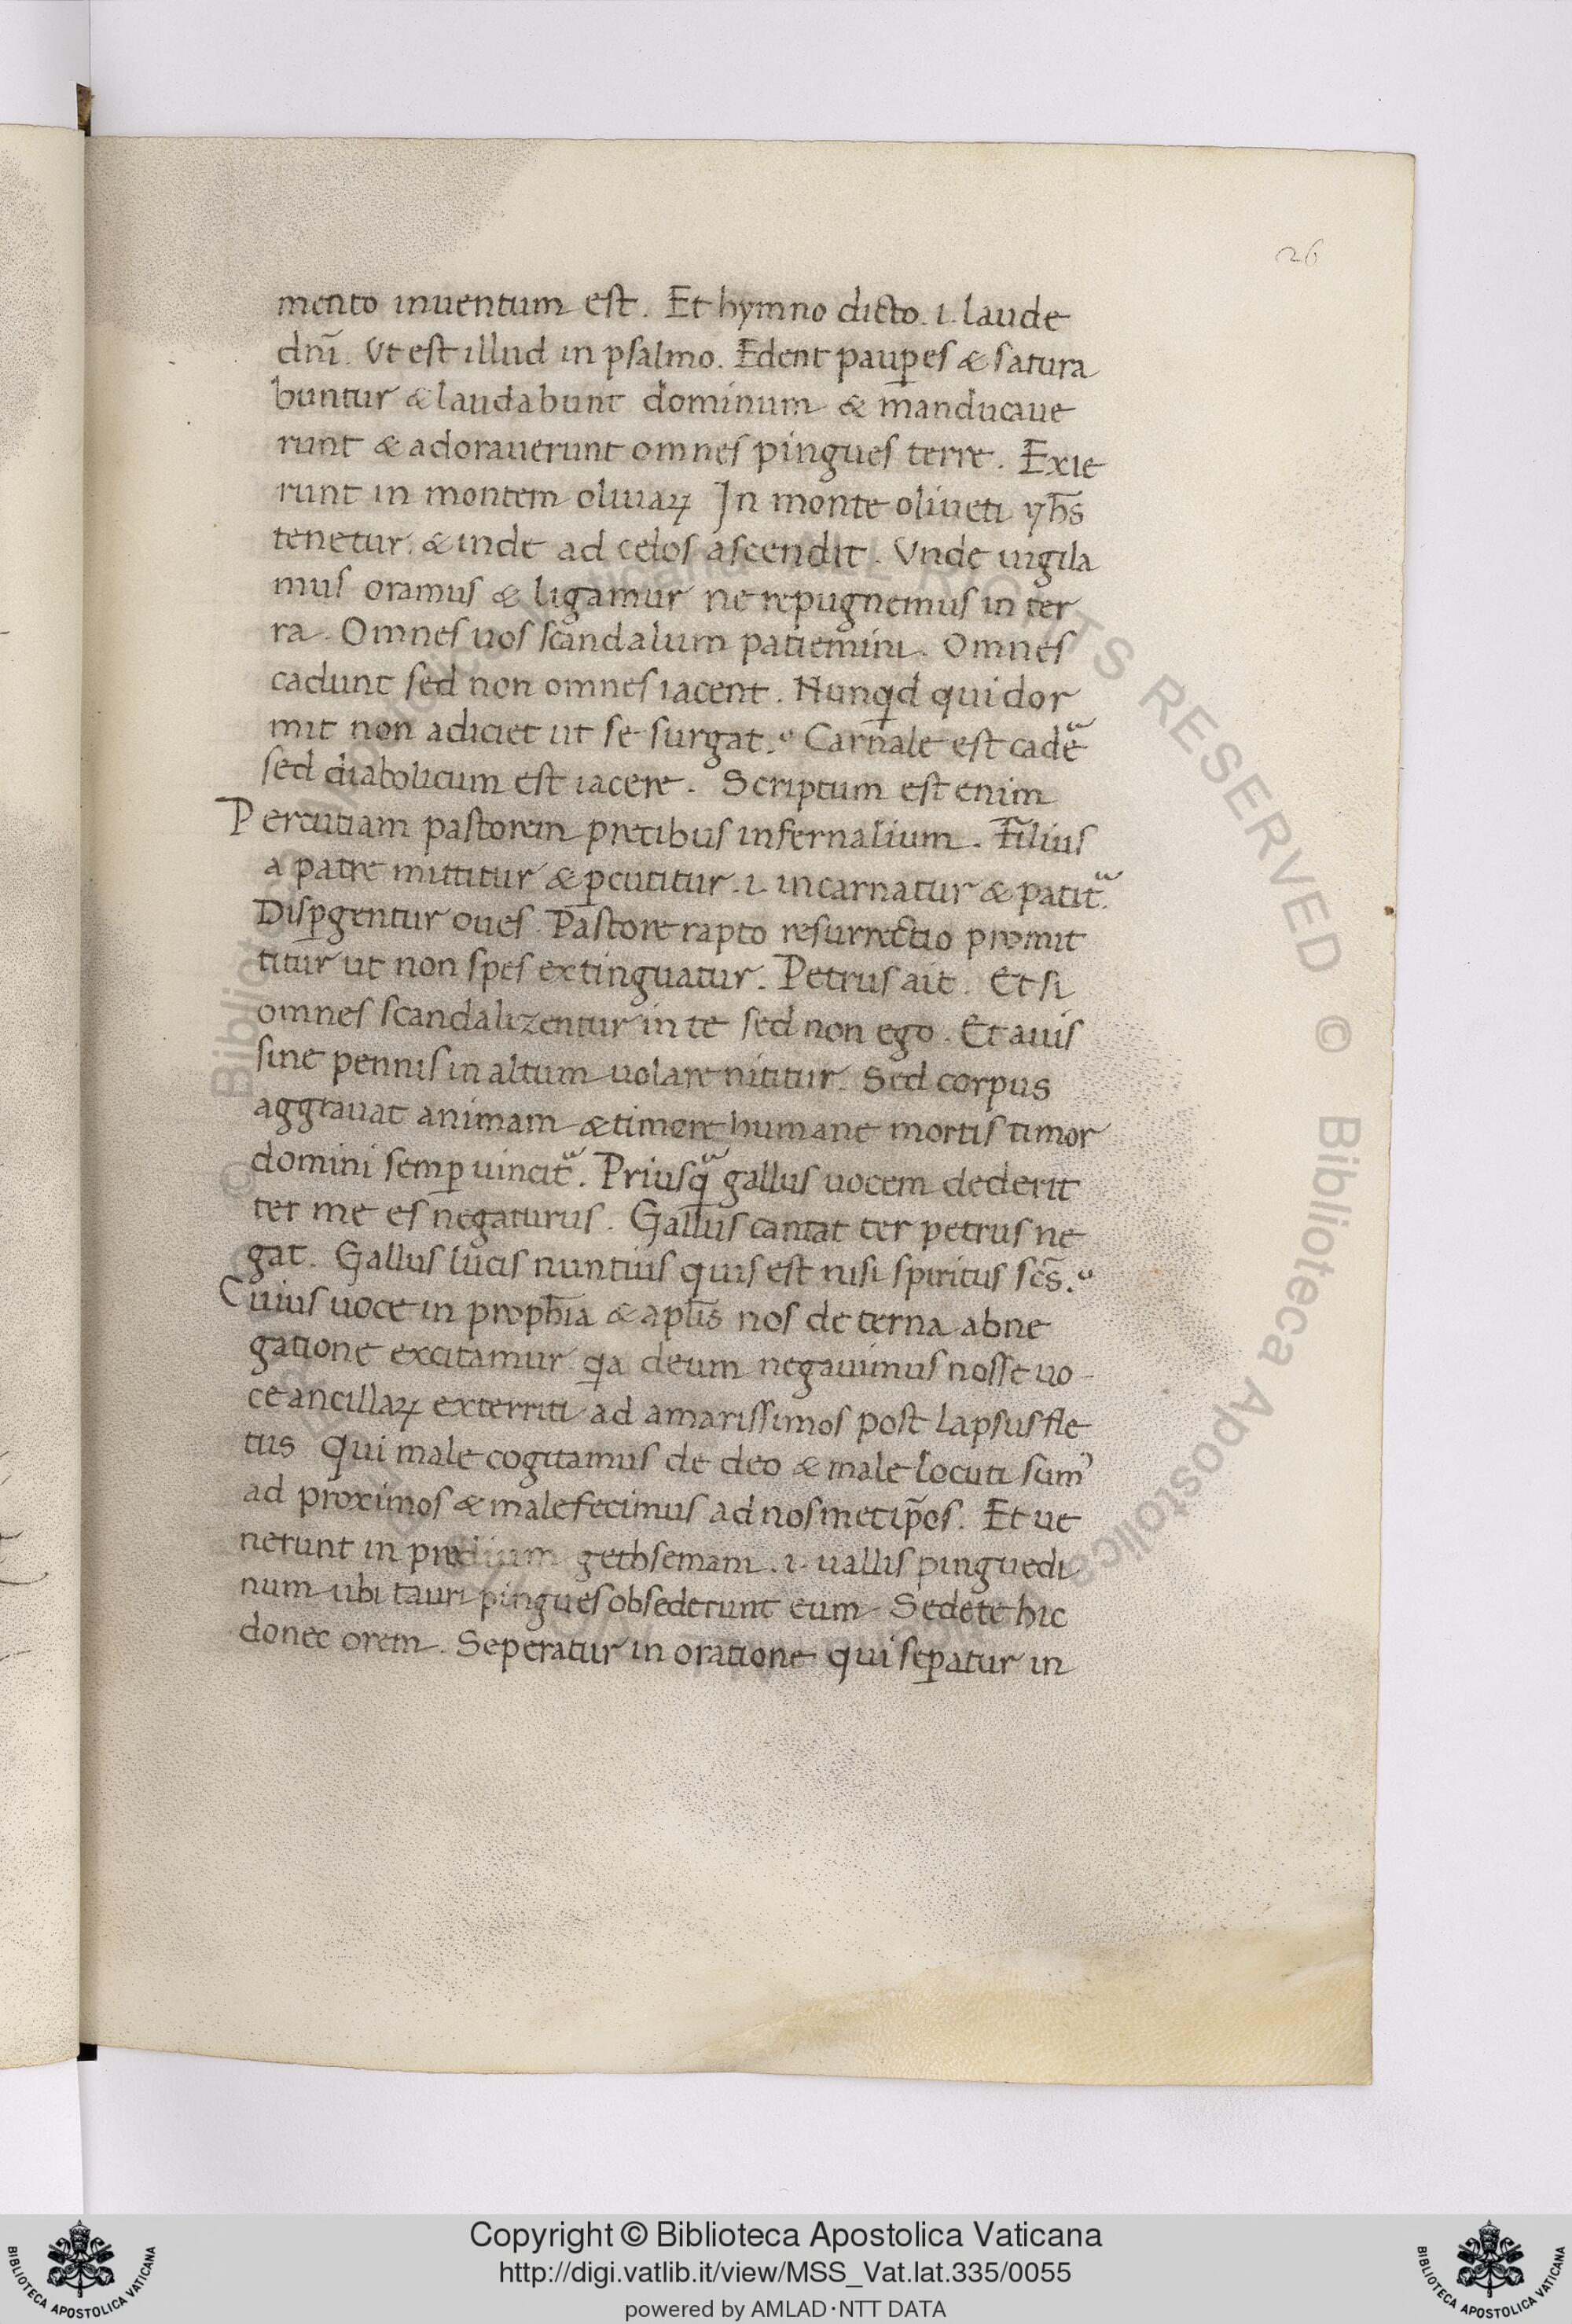 26
mento inuentum est. Et hymno dicto .i. laude
dn̄i. Vt est illud in psalmo. Edent paup̱es & satura
buntur & laudabunt dominum & manducaue
runt & adorauerunt omnes pingues terre. Exie
runt in montem oliuaꝝ In monte oliueti yh̄s
tenetur. & inde ad celos ascendit. Vnde uigila
mus oramus & ligamur ne repugnemus in ter
ra. Omnes uos scandalum patiemini. Omnes
cadunt sed non omnes iacent. Nunqd qui dor
mit non adiciet ut se surgat. Carnale est cadē
sed diabolicum est iacere. Scriptum est enim
Percutiam pastorem precibus infernalium. Filius
a patre mittitur & ꝑcutitur .i. incarnatur & patitᷓ.
Disꝑgentur oues. Pastore rapto resurrectio promit
titur ut non spes extinguatur. Petrus ait. Et si
omnes scandalizentur in te sed non ego. Et auis
sine pennis in altum uolare nititur. Sed corpus
aggrauat animam & timore humane mortis timor
domini semꝑ uincitᷓ. Priusqᷓ gallus uocem dederit
ter me es negaturus. Gallus cantat ter petrus ne
gat. Gallus lucis nuntius quis est nisi spiritus sc̄s.
Cuius uoce in proph̄ia & apl̄is nos de terna abne
gatione excitamur qa deum negauimus nosse uo-
ce ancillaꝝ exterriti ad amarissimos post lapsus fle
tus Qui male cogitamus de deo & male locuti sum᾽
ad proximos & male fecimus ad nosmetip̄os. Et ue
nerunt in predium gethsemani .i. uallis pinguedi
num ubi tauri pingues obsederunt eum. Sedete hic
donec orem. Seperatur in oratione qui seꝑatur in
© Biblioteca Apostolica Vaticana ALL RIGHTS RESERVED
© Biblioteca Apostolica
Copyright © Biblioteca Apostolica Vaticana
http://digi.vatlib.it/view/MSS_Vat.lat.335/0055
powered by AMLAD·NTT DATA
BIBLIOTECA APOSTOLICA VATICANA
BIBLIOTECA APOSTOLICA VATICANA